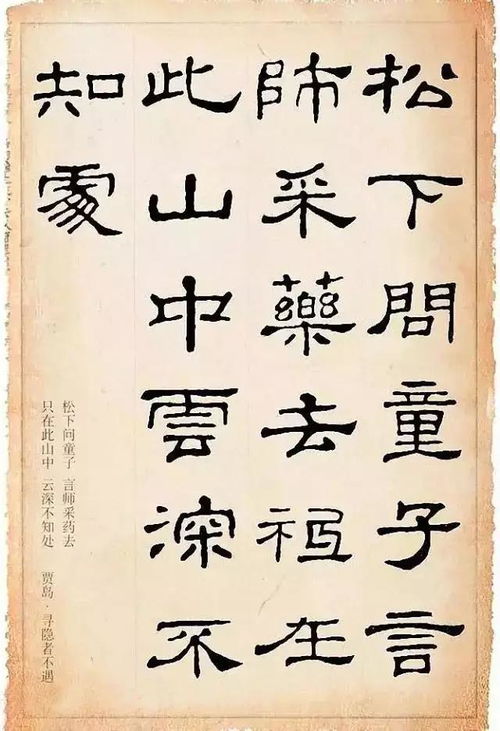 松下問童子言
師采藥去祗在
此山中雲深不
知處
松下问童子 言师采药去
只在此山中 云深不知处 贾岛·寻隐者不遇